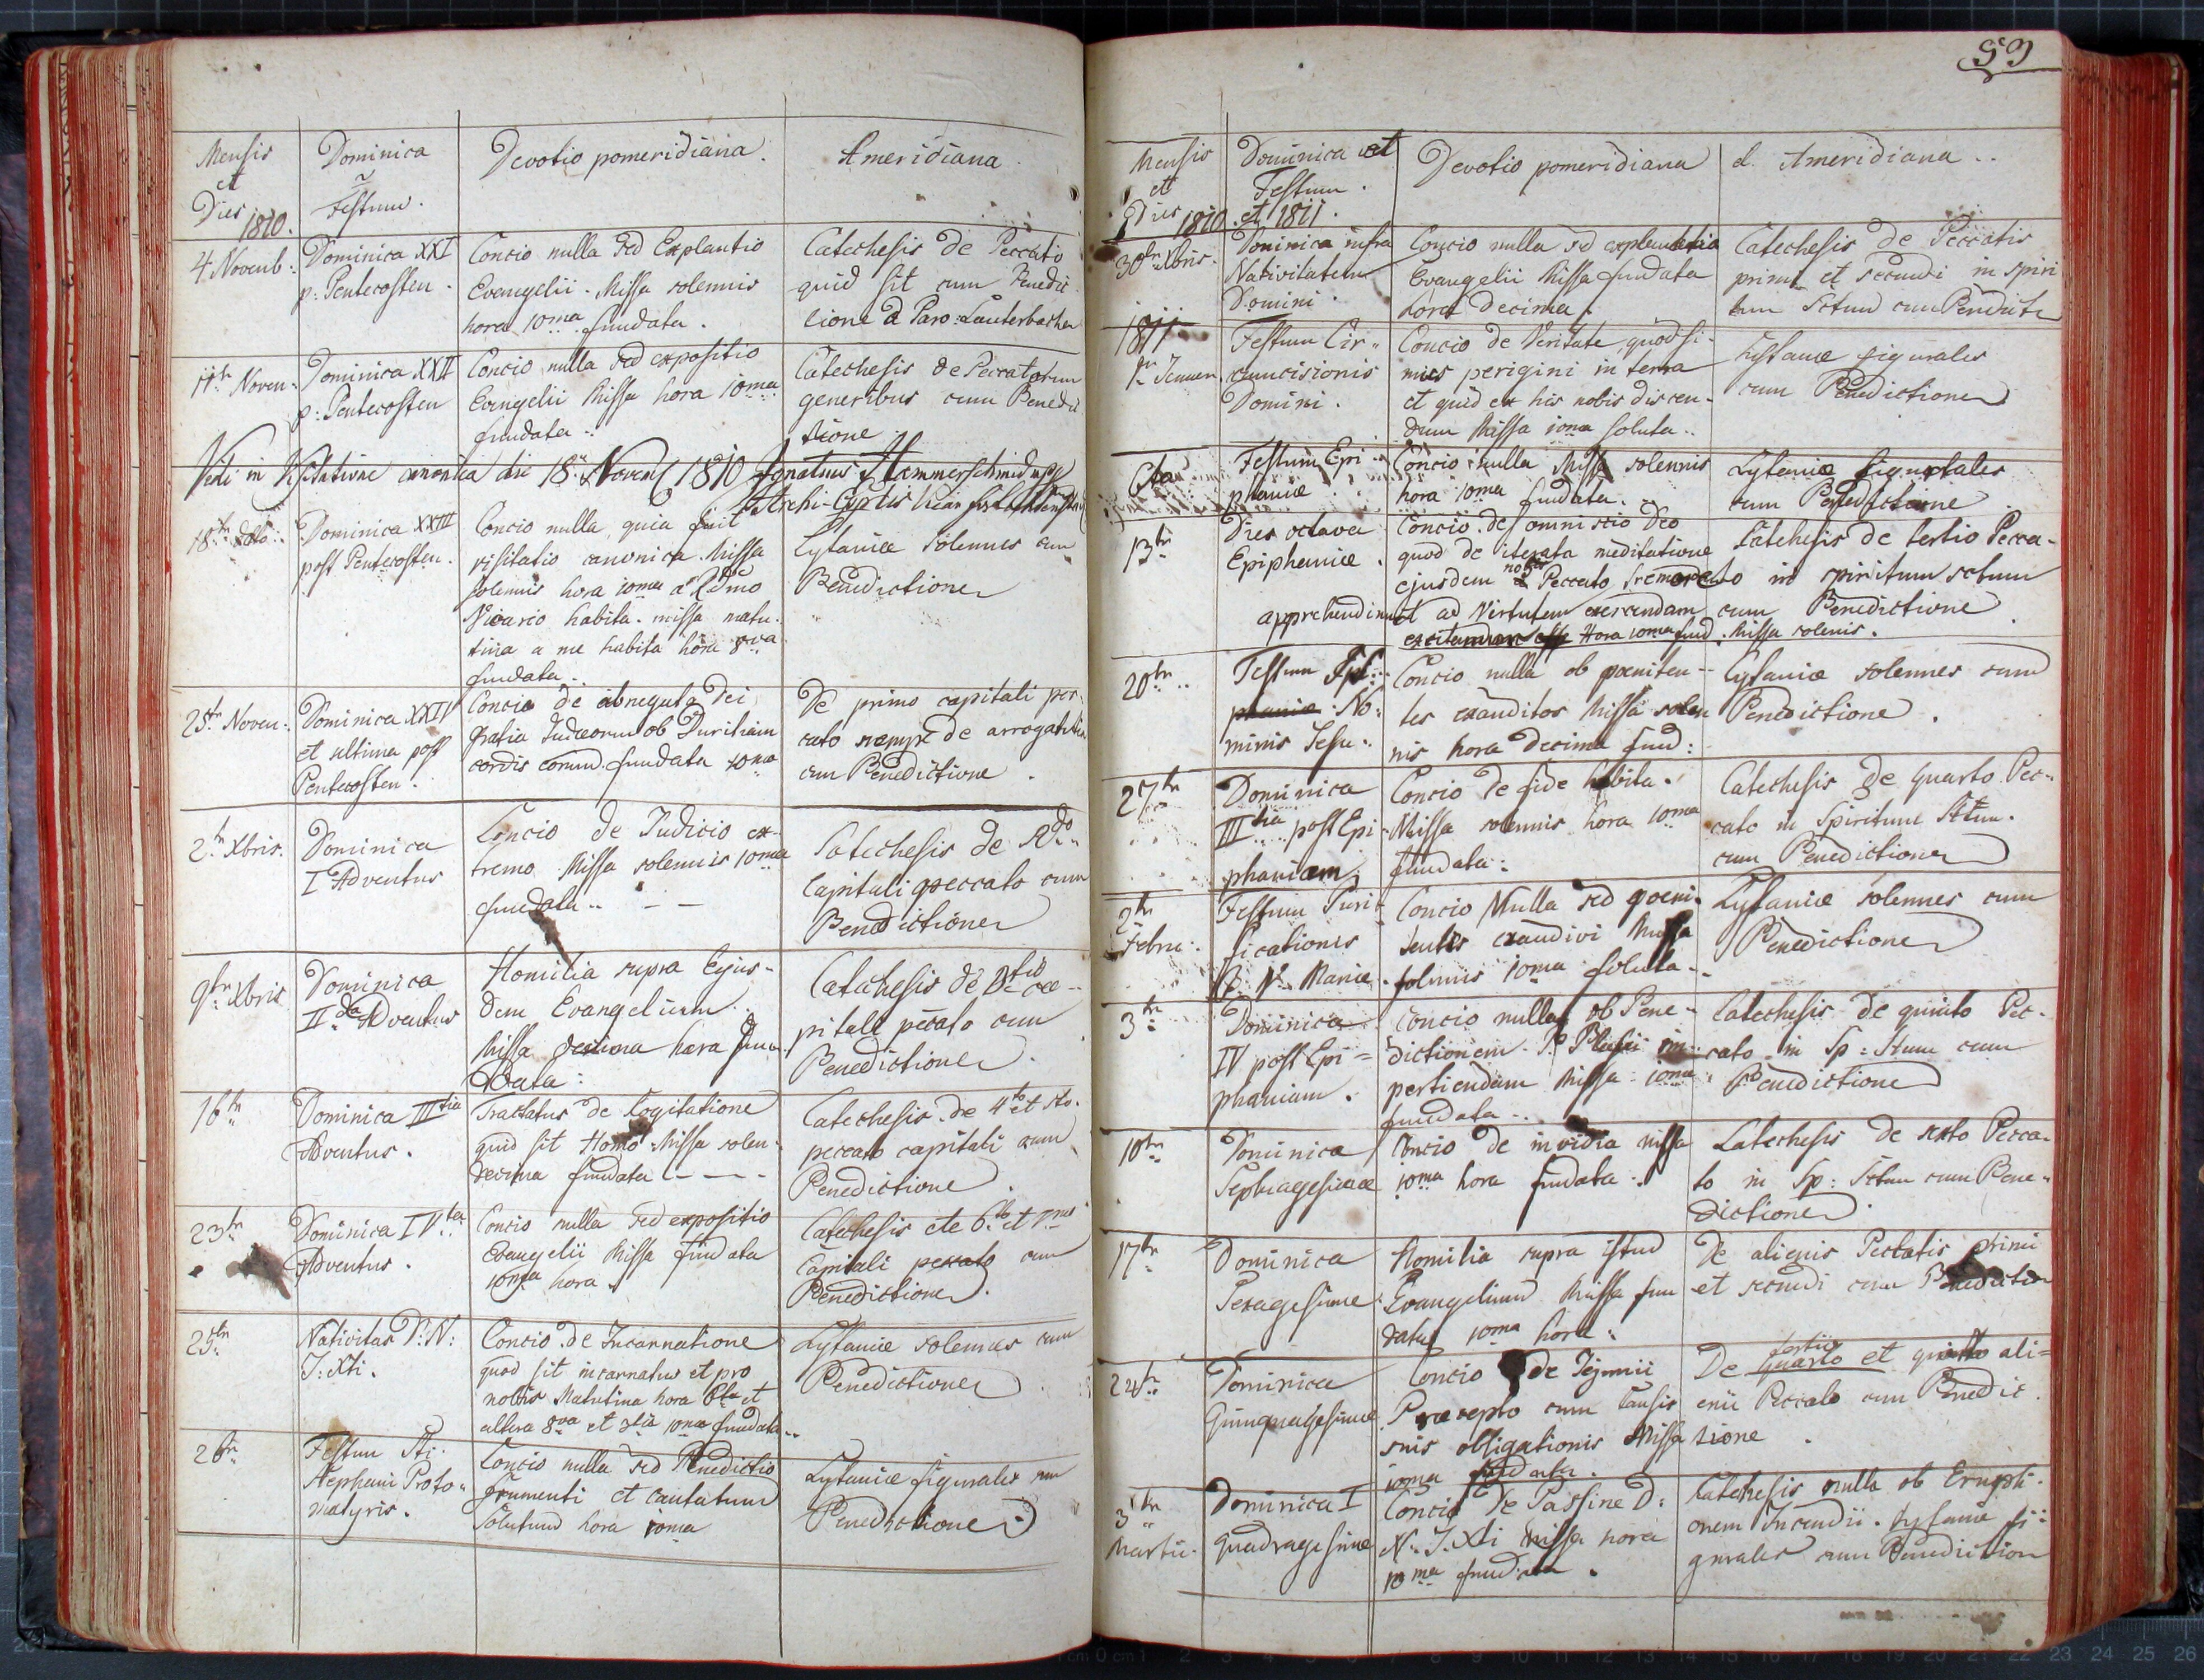 Mensis
et
Dies 1810.
Dominica
Festum.
Devotio pomeridiana.
Ameridiana.
4 Novemb:
Dominica XXI
p: Pentecosten.
Concio nulla sed Explantio
Evangelii. Missa solennis
hora 10ma fundata.
Catechesis de Peccato
quid sit cum Benedic
tione a Paro: Lauterbacher
11tn Noven:
Dominica XXII
p: Pentecosten
Concio nulla sed expositio
Evangelii Missa hora 10ma
fundata.
Catechesis de Peccatorum
generibus cum Benedic
tione
Vidi in Visitatione canonica die 18. Novem 1810 Ignatius Hammerschmid mpp
18tn
Dominica XXIII
post Pentecosten.
Concio nulla, quia fuit
visitatio canonica. Missa
solennis hora 10ma a Rdmo
Vicario habita. missa matu-
tina a me habita hora 8va
fundata.
Lytaniæ Solennes cum
Benedictione
25tn Noven:
Dominica XXIV
et ultima post
Pentecosten.
Concio de abnegata Dei
gratia Judæorum ob Duritiam
cordis eorund. fundata 10ma
De primo capitali pec-
cato nempe de arrogantia
cum Benedictione.
2tn Xbris.
Dominica
I Adventus
Concio de Judicio ex-
tremo Missa solennis 10ma
fundata.. - -
Catechesis de 2do
Capitali peccato cum
Benedictione
9tn Xbris
Dominica
IIda Adventus
Homilia supra Ejus-
dem Evangelium.
Missa decima hora fun-
data:
Catechesis de 3tio ca-
pitali peccato cum
Benedictione.
16tn
Dominica IIItia
Adventus.
Tractatus de Cogitatione
quid sit Homo. Missa solen-
decima fundata - - -
Catechesis de 4to et 5to.
peccato capitali cum
Benedictione.
23tn
Dominica IVta
Adventus.
Concio nulla sed expositio
Evangelii Missa fundata
10ma hora.
Catechesis de 6to et 7mo
Capitali peccato cum
Benedictione.
25tn
Nativitas D: N:
J: Xti.
Concio de Incarnatione
quod sit incarnatus et pro
nobis Matutina hora 6ta et
altera 8va et 3tia 10ma fundata..
Lytaniæ solennes cum
Benedictione
26tn
Festum Sti.
Stephani Proto-
matyris.
Concio nulla sed Benedictio
frumenti et cantatum
Solutum hora 10ma
Lytaniæ figurales cum
Benedictione
53
Mensis
et
Dies 1810
Dominica et
Festum.
et 1811.
Devotio pomeridiana
et Ameridiana..
30tn Xbris.
Dominica infra
Nativitatem
Domini.
Concio nulla sed explanatio
Evangelii Missa fundata
hora decima.
Catechesis de Peccatis
primi et secundi in spiri
tum Sctum cum Benedicte
1811
1tn Jenner
Festum Cir-
cumcisionis
Domini.
Concio de Veritate, quod si-
mus perigini in terra
et quid ex his nobis discen-
dum Missa 10ma soluta..
Lytaniæ figurales
cum Benedictione
6ta
Festum Epi
phaniæ
Concio nulla Missa solennis
hora 10ma fundata.
Lytaniæ figurales
cum Benedictione
13tn
Dies octava
Epiphaniæ.
Concio de omniscio Deo
quod de iterata meditatione
ejusdem nos a Peccato
apprehendimus et ad Virtutem exercendam
Hora 10ma fund. Missa solenis.
Catechesis de tertio Pecca-
to in spiritum sctum
cum Benedictione
20tn
Festum
phaniæ No-
minis Jesu.
Concio nulla ob poeniten-
tes exauditos Missa solen
nis hora decima fund:
Lytaniæ solennes cum
Benedictione.
27tn
Dominica
IIItia post Epi
phaniam,
Concio de fide habita.
Missa solennis hora 10ma
fundata.
Catechesis de quarto Pec-
cato in Spiritum Sctum.
cum Benedictione
2tn
Febru:
Festum Puri-
ficationis
B. V. Mariæ
Concio Nulla sed poeni-
tentes exaudivi Missa
solennis 10ma soluta.
Lytaniæ solennes cum
Benedictione
3tn
Dominica
IV post Epi=
phaniam.
Concio nulla ob Bene-
dictionem S. Blasii im-
pertiendam Missa 10ma
fundata..
Catechesis de quinto Pec-
cato in Sp: Stum cum
Benedictione
10tn
Dominica
Septuagesimæ
Concio de invidia missa
10ma hora fundata..
Catechesis de sexto Pecca-
to in Sp: Sctum cum Bene-
dictione.
17tn
Dominica
Sexagesimæ
Homilia supra istud
Evangelium Missa fun
data 10ma hora.
De alienis Peccatis primi
et secundi cum Benedictio
24tn
Dominica
Quinquagesimæ
Concio de Jejunii
Præcepto cum causis
suis obligationis Missa
10ma fundata.
tertio
De quarto et quinto ali=
enii Peccato cum Benedic
tione.
3tn
Martii.
Dominica I
Quadragesimæ
Concio de Passine D:
N. J. Xti Missa hora
10ma fundata.
Catechesis nulla ob Erupti-
onem Incendii. Lytaniæ fi-
gurales cum Benediction